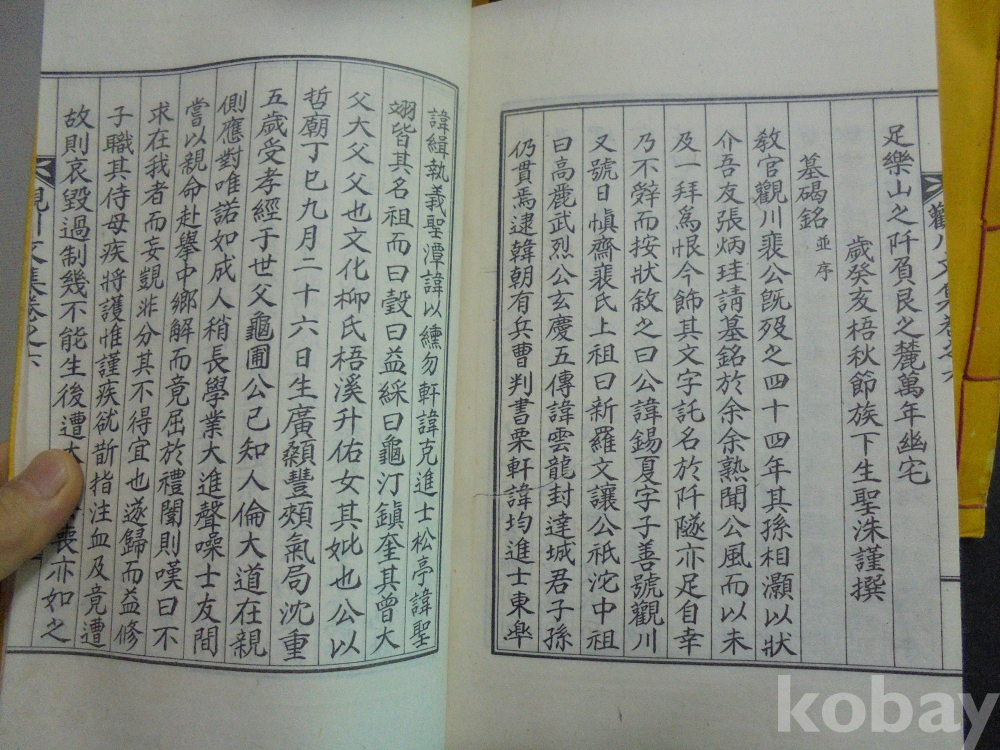 足樂山之阡負艮之麓萬年幽宅
歲癸亥梧秋節族下生聖洙謹撰
墓碣銘 並序
敎官觀川裵公旣歿之四十四年其孫相灝以狀
介吾友張炳珪請墓銘於余余熟聞公風而以未
及一拜爲恨今飾其文字託名於阡隧亦足自幸
乃不辤而按狀敘之曰公諱錫夏字子善號觀川
又號日愼齋裵氏上祖曰新羅文讓公祇沱中祖
曰高麗武烈公玄慶五傳諱雲龍封達城君子孫
仍貫焉逮韓朝有兵曹判書栗軒諱均進士東皐
諱緝執義聖潭諱以纁勿軒諱克進士松亭諱聖
翊皆其名祖而曰瑴曰益綵曰龜汀鎭奎其曾大
父大父父也文化柳氏梧溪升佑女其妣也公以
哲廟丁巳九月二十六日生廣顙豐頰氣局沈重
五歲受孝經于世父龜圃公已知人倫大道在親
側應對唯諾如成人稍長學業大進聲噪士友間
嘗以親命赴擧中鄕解而竟屈於禮闈則嘆曰不
求在我者而妄覬非分其不得宜也遂歸而益修
子職其侍母疾將護惟謹疾欲斮指注血及竟遭
故則哀毀過制幾不能生後遭 喪亦如之
觀川文集卷之六
觀川文集卷之六
kobay